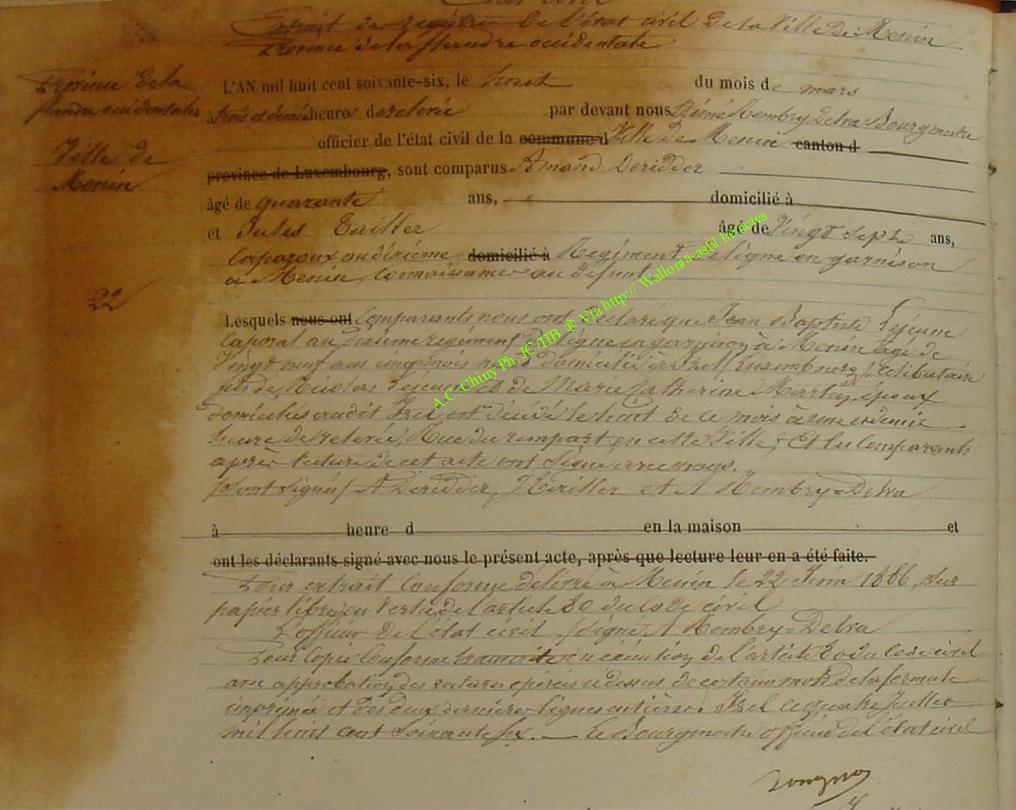 Extrait des registres de l'état civil de la Ville de Menin
Province de la flandre occidentale
Province de la
flandre occidentales
Ville de
Menin
22
L'AN mil huit cent soixante-six, le huit du mois de mars
à trois et demie heure de relevée par devant nous Aimé Rembry Delva Bourgmestre
officier de l'état civil de la commune d Ville de Menin canton d
province de Luxembourg, sont comparus Amand Deridder
âgé de quarante ans, domicilié à
et Jules âgé de Vingt sept ans,
Caporaux au dixième domicilié à Régiment de ligne en garnison
à Menin, connaissances au défunt
Lesquels nous ont Comparants nous ont déclaré que Jean Baptiste Lejeune
Caporal au dixième régiment de ligne en garnison à Menin âgé de
Vingt neuf ans domicilié à Izel (Luxembourg) célibataire
fils de Nicolas Lejeune et de Marie Catherine époux
domiciliés audit Izel est décédé le huit de ce mois à une et demie
heure de relevée, Rue du rempart en cette Ville, Et les Comparants
après lecture de cet acte ont signé avec nous.
(Sont signés) A Deridder, J et A Rembry=Delva
à heure d en la maison et
ont les déclarants signé avec nous le présent acte, après que lecture leur en a été faite.
Pour extrait conforme délivré à Menin le 22 Juin 1866, sur
papier libre en vertu de l'article 80 du Code civil
L'officier de l'état civil (signé) A Rembry=Delva
Pour Copie Conforme transcrite en exécution de l'article 80 du Code civil
avec approbation des ratures opérées ci dessus de certains mots de la formule
imprimée et des deux dernières lignes entières. Izel le quatre Juillet
mil huit cent soixante six. — Le Bourgmestre officier de l'état civil
A.C- Chiny Ph JC/HB @ Via http:// Wallonia-asbl.be/actes